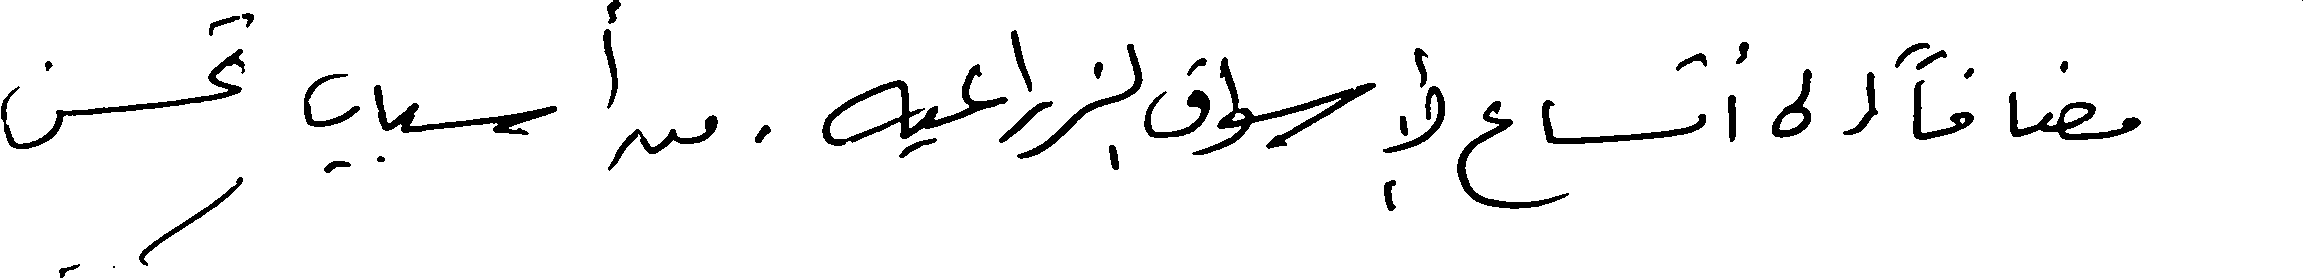 مضافاً لذلك أتساع الأسواق الزراعيه . من أسباب تحسن